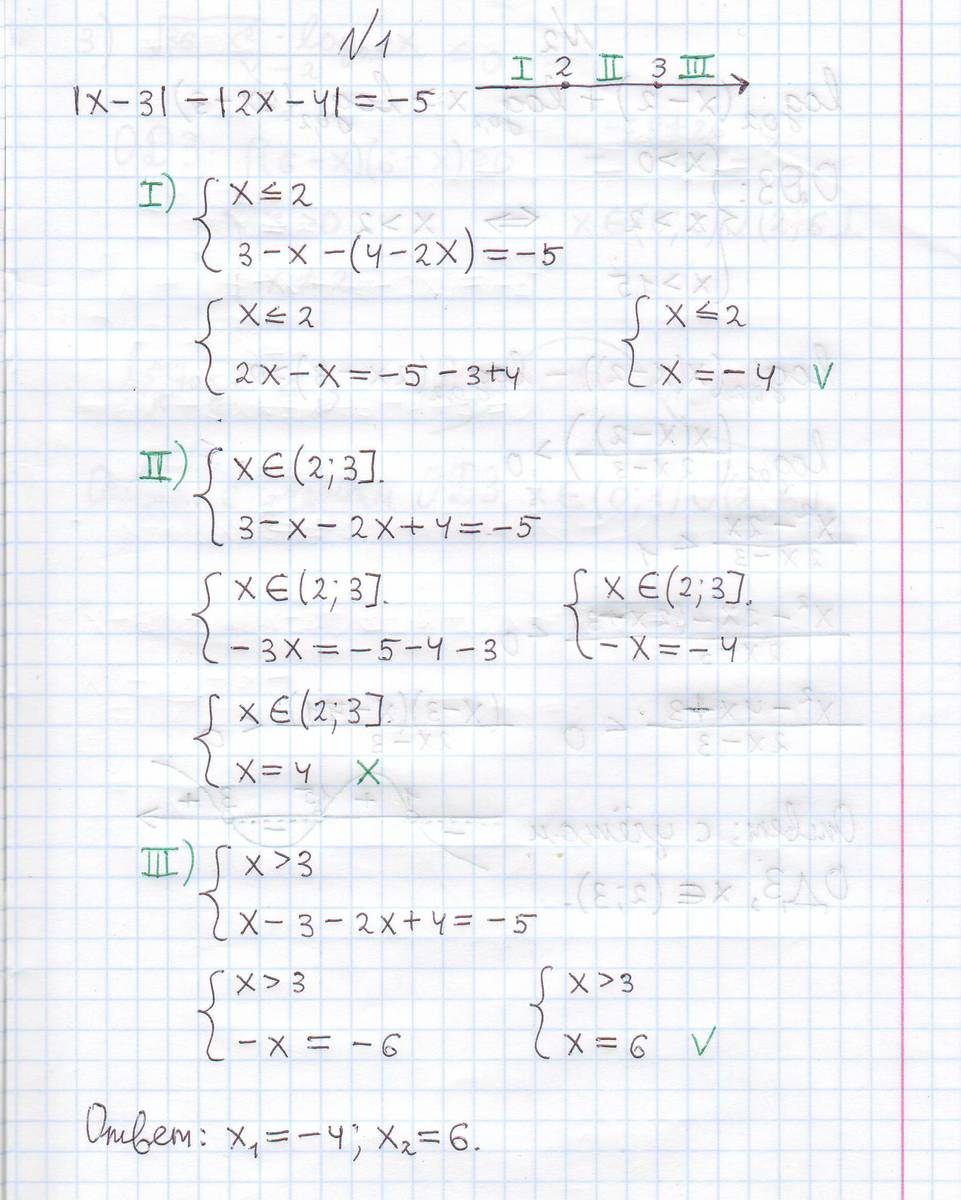 N1
|x-3|-|2x-4|=-5 I 2 II 3 III
I) { x≤2
3-x-(4-2x)=-5
{ x≤2 { x≤2
2x-x=-5-3+4 x=-4 V
II) { x∈(2;3].
3-x-2x+4=-5
{ x∈(2;3]. { x∈(2;3].
-3x=-5-4-3 -x=-4
{ x∈(2;3].
x=4 X
III) { x>3
x-3-2x+4=-5
{ x>3 { x>3
-x=-6 x=6 V
Ответ: x₁=-4; x₂=6.